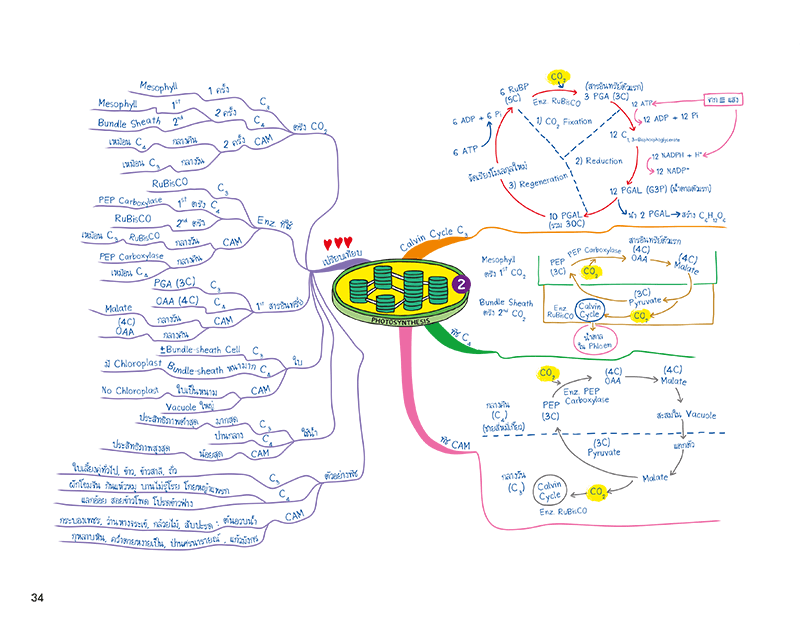 Mesophyll
1 ครั้ง
C3
Mesophyll
1st
Bundle Sheath
2nd
2 ครั้ง
C4
เหมือน C4
กลางคืน
2 ครั้ง
CAM
เหมือน C3
กลางวัน
ตรึง CO2
RuBisCO
C3
PEP Carboxylase
1st ตรึง
RuBisCO
2nd ตรึง
C4
เหมือน C3
RuBisCO
กลางวัน
CAM
PEP Carboxylase
เหมือน C4
กลางคืน
Enz ที่ใช้
PGA (3C)
C3
OAA (4C)
C4
Malate
(4C)
กลางวัน
OAA
กลางคืน
CAM
1st สารอินทรีย์
±Bundle-sheath Cell
C3
มี Chloroplast
Bundle-sheath หนามาก
C4
No Chloroplast
ใบเป็นหนาม
Vacuole ใหญ่
CAM
ใบ
ประสิทธิภาพต่ำสุด
มากสุด
C3
ปานกลาง
C4
ประสิทธิภาพสูงสุด
น้อยสุด
CAM
ใช้น้ำ
ใบเลี้ยงคู่ทั่วไป, ข้าว, ข้าวสาลี, ถั่ว
C3
ผักโขมจีน กินแห้วหมู บานไม่รู้โรย โกยหญ้าแพรก
แลกอ้อย สอยข้าวโพด โปรดข้าวฟ่าง
C4
กระบองเพชร, ว่านหางจระเข้, กล้วยไม้, สับปะรด : ต้นอวบน้ำ
กุหลาบหิน, คว่ำตายหงายเป็น, ป่านศรนารายณ์, แก้วมังกร
CAM
ตัวอย่างพืช
เปรียบเทียบ
PHOTOSYNTHESIS
2
Calvin Cycle C3
CO2
6 RuBP
(5C)
Enz RuBisCO
(สารอินทรีย์ตัวแรก)
3 PGA (3C)
1) CO2 Fixation
12 ATP
12 ADP + 12 Pi
จาก ≡ แสง
12 C1,3-Bisphosphoglycerate
12 NADPH + H+
12 NADP+
2) Reduction
12 PGAL (G3P) (น้ำตาลตัวแรก)
นำ 2 PGAL → สร้าง C6H12O6
10 PGAL
(รวม 30C)
3) Regeneration
จัดเรียงโมเลกุลใหม่
6 ADP + 6 Pi
6 ATP
พืช C4
Mesophyll
ตรึง 1st CO2
PEP
(3C)
PEP Carboxylase
CO2
สารอินทรีย์ตัวแรก
(4C)
OAA
(4C)
Malate
Bundle Sheath
ตรึง 2nd CO2
(3C)
Pyruvate
Enz.
RuBisCO
Calvin
Cycle
CO2
น้ำตาล
ใน Phloem
พืช CAM
CO2
(4C)
OAA
(4C)
Malate
Enz. PEP
Carboxylase
PEP
(3C)
กลางคืน
(C4)
สะสมใน Vacuole
(3C)
Pyruvate
แตกตัว
กลางวัน
(C3)
Malate
Calvin
Cycle
CO2
Enz. RuBisCO
34